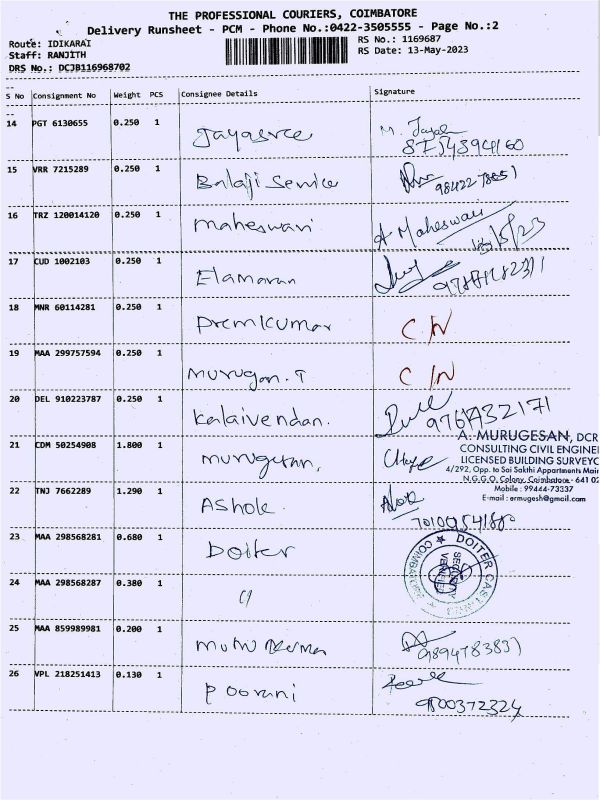 THE PROFESSIONAL COURIERS, COIMBATORE
Delivery Runsheet - PCM - Phone No.:0422-3505555 - Page No.:2
Route: IDIKARAI
RS No.: 1169687
Staff: RANJITH
RS Date: 13-May-2023
DRS No.: DCJB116968702
S No Consignment No Weight PCS Consignee Details Signature
14 PGT 6130655 0.250 1 Jayasree M. Jayal
15 VRR 7215289 0.250 1 Balaji Service
16 TRZ 120014120 0.250 1 maheswari A Maheswari
17 CUD 1002103 0.250 1 Elamaran
18 MNR 60114281 0.250 1 Premkumar C/N
19 MAA 299757594 0.250 1 murugan. T C/N
20 DEL 910223787 0.250 1 Kalaivendan. 9761432171
21 CDM 50254908 1.800 1 murugesan,
A. MURUGESAN, DCR
CONSULTING CIVIL ENGINE
LICENSED BUILDING SURVEYO
4/292, Opp. to Sai Sakthi Appartments Main
N.G.G.O. Colony, Coimbatore - 641 02
Mobile : 99444-73337
E-mail : ermugesh@gmail.com
22 TNJ 7662289 1.290 1 Ashok Ashok
23 MAA 298568281 0.680 1 Doiter
DOITER CAST
COIMBATORE
SECURITY
VERIFIED
24 MAA 298568287 0.380 1 "
25 MAA 859989981 0.200 1 muthu Kumar
26 VPL 218251413 0.130 1 Poorani
9800372324